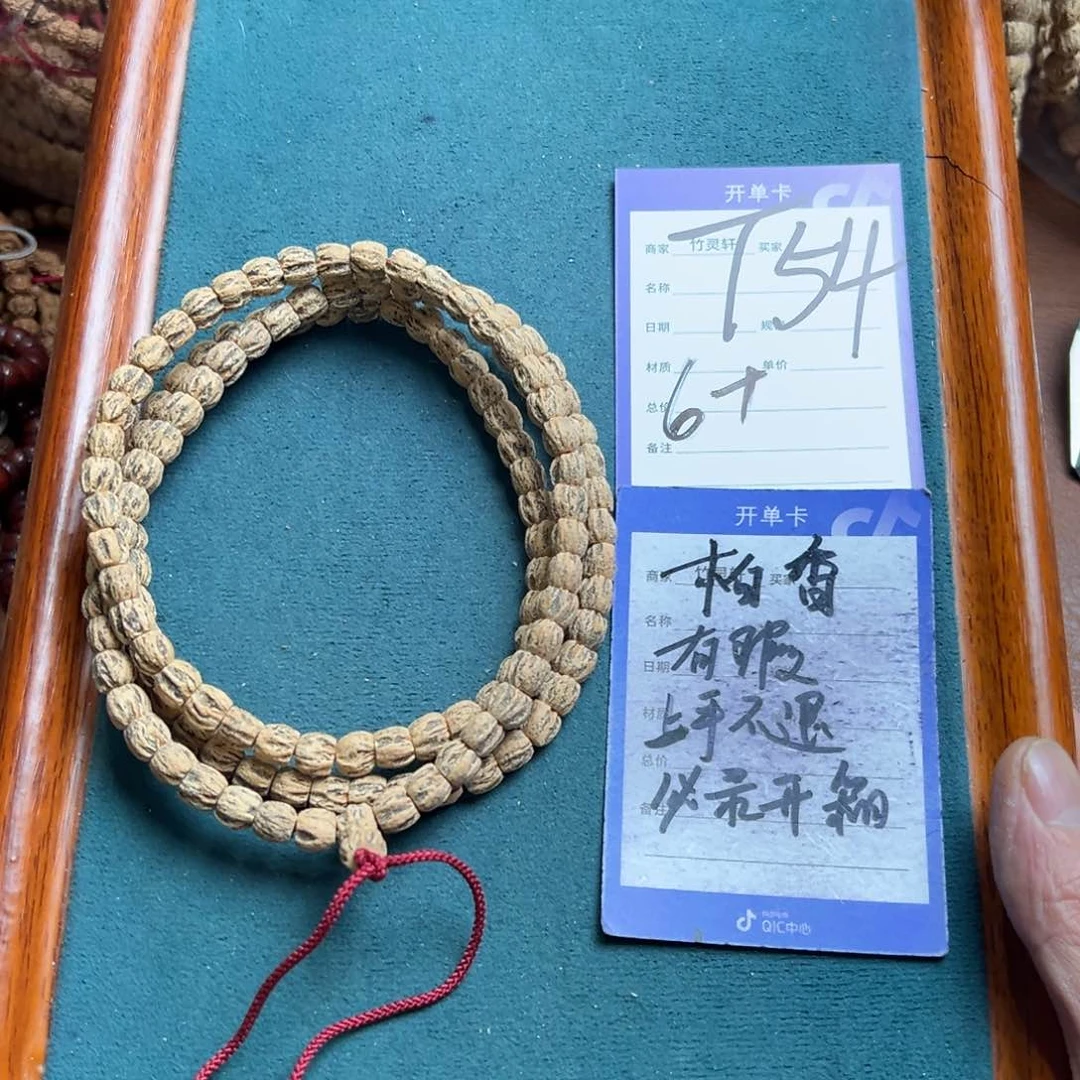 开单卡
商家 竹灵轩 买家
T54
名称
日期 规
材质 单价
6+
总价
备注
开单卡
商家 买家
柏香
名称
有瑕
日期
上手不退
总价
必示开箱
备注
QIC中心